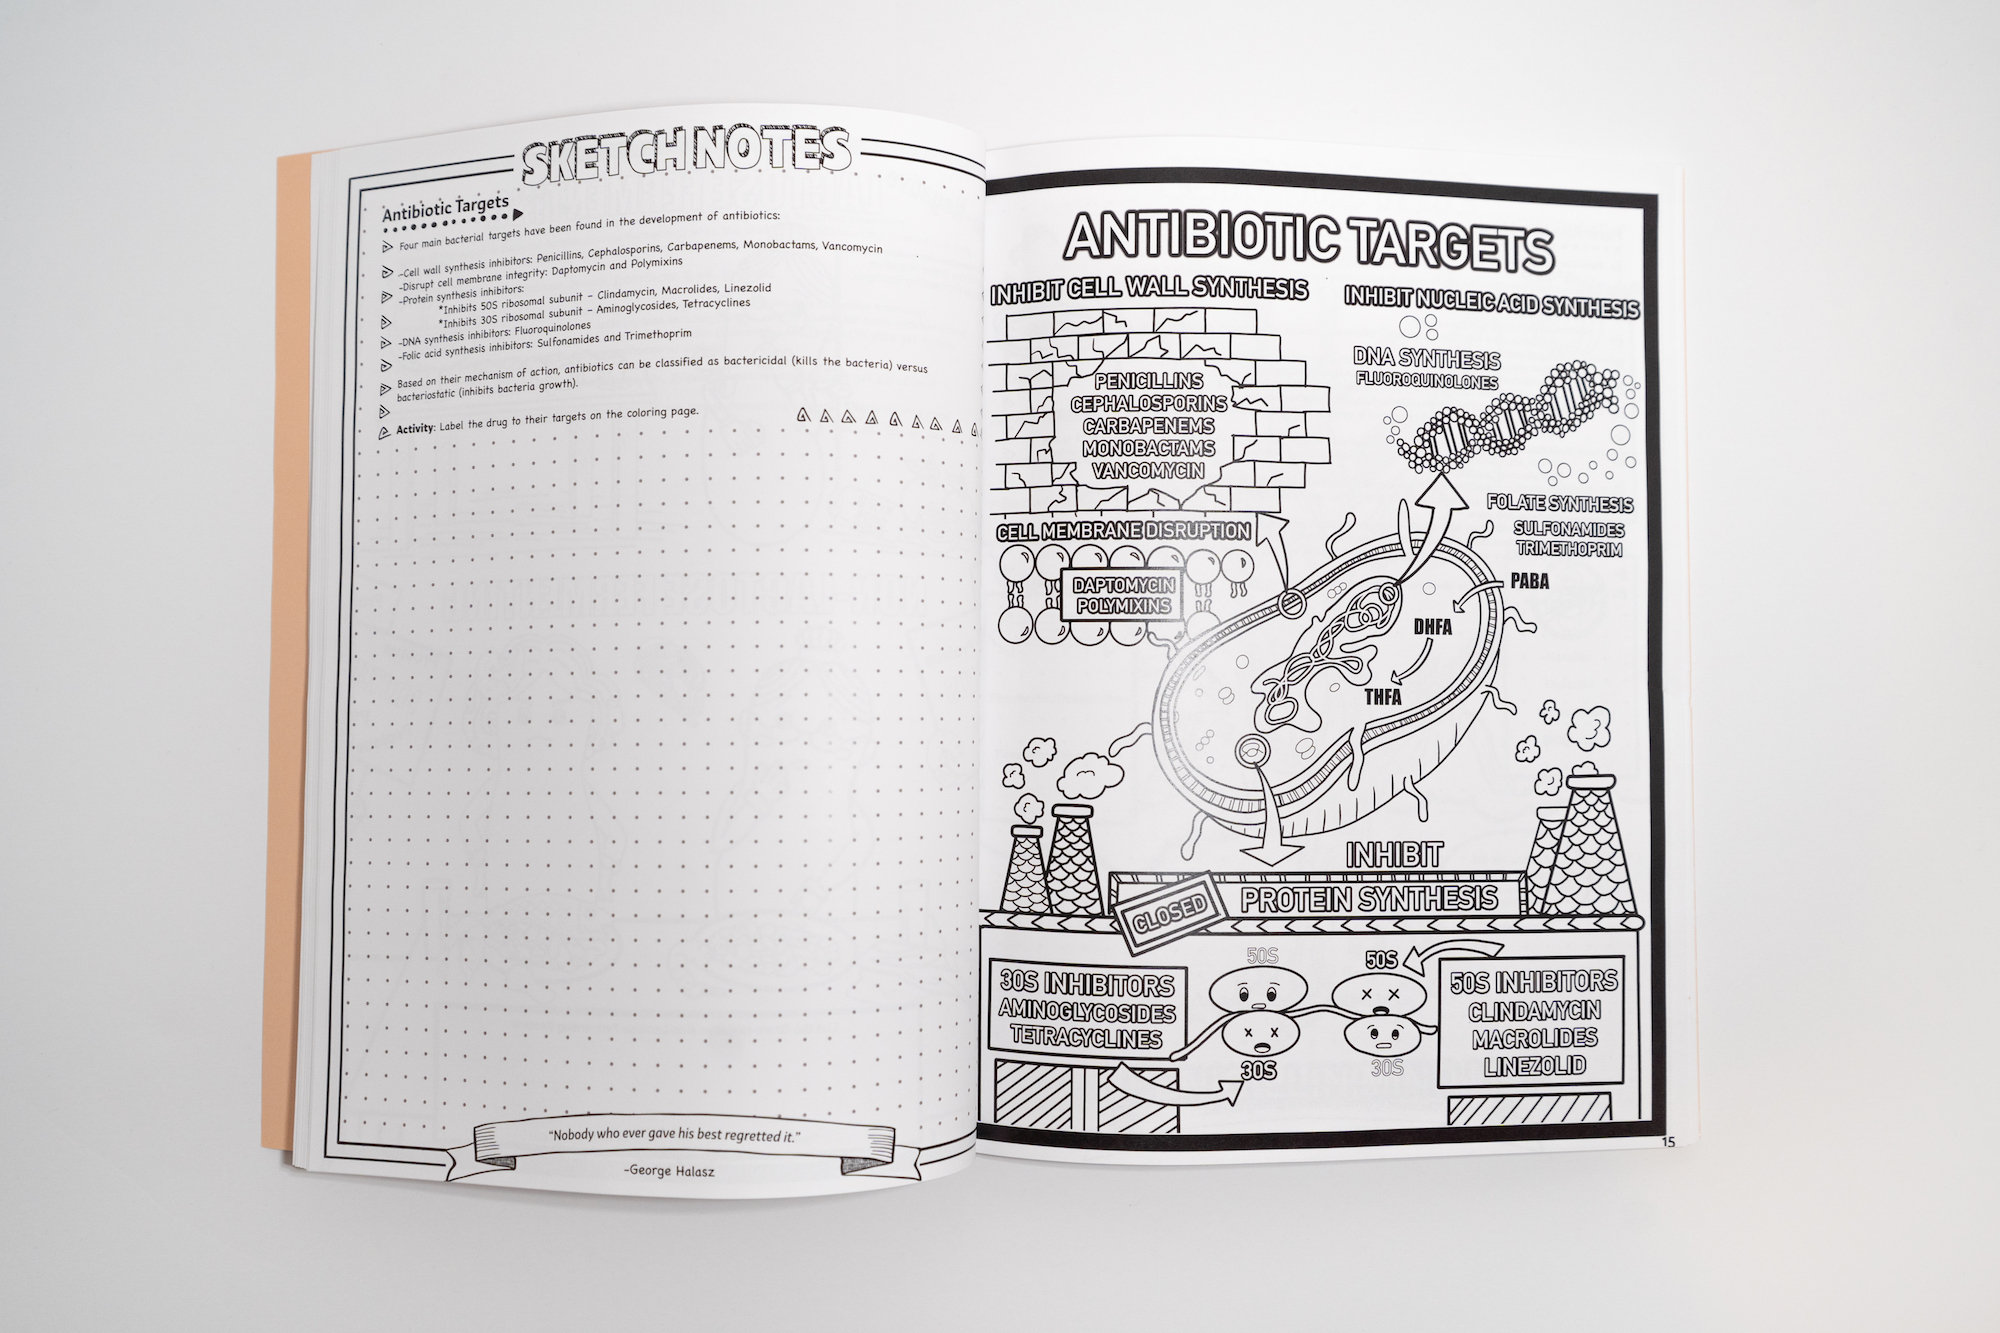 SKETCH NOTES
Antibiotic Targets
Four main bacterial targets have been found in the development of antibiotics:
-Cell wall synthesis inhibitors: Penicillins, Cephalosporins, Carbapenems, Monobactams, Vancomycin
-Disrupt cell membrane integrity: Daptomycin and Polymixins
-Protein synthesis inhibitors:
*Inhibits 50S ribosomal subunit – Clindamycin, Macrolides, Linezolid
*Inhibits 30S ribosomal subunit – Aminoglycosides, Tetracyclines
-DNA synthesis inhibitors: Fluoroquinolones
-Folic acid synthesis inhibitors: Sulfonamides and Trimethoprim
Based on their mechanism of action, antibiotics can be classified as bactericidal (kills the bacteria) versus
bacteriostatic (inhibits bacteria growth).
Activity: Label the drug to their targets on the coloring page.
"Nobody who ever gave his best regretted it."
-George Halasz
ANTIBIOTIC TARGETS
INHIBIT CELL WALL SYNTHESIS
PENICILLINS
CEPHALOSPORINS
CARBAPENEMS
MONOBACTAMS
VANCOMYCIN
INHIBIT NUCLEIC ACID SYNTHESIS
DNA SYNTHESIS
FLUOROQUINOLONES
FOLATE SYNTHESIS
SULFONAMIDES
TRIMETHOPRIM
CELL MEMBRANE DISRUPTION
DAPTOMYCIN
POLYMIXINS
PABA
DHFA
THFA
INHIBIT
PROTEIN SYNTHESIS
CLOSED
30S INHIBITORS
AMINOGLYCOSIDES
TETRACYCLINES
50S
30S
50S
30S
50S INHIBITORS
CLINDAMYCIN
MACROLIDES
LINEZOLID
15